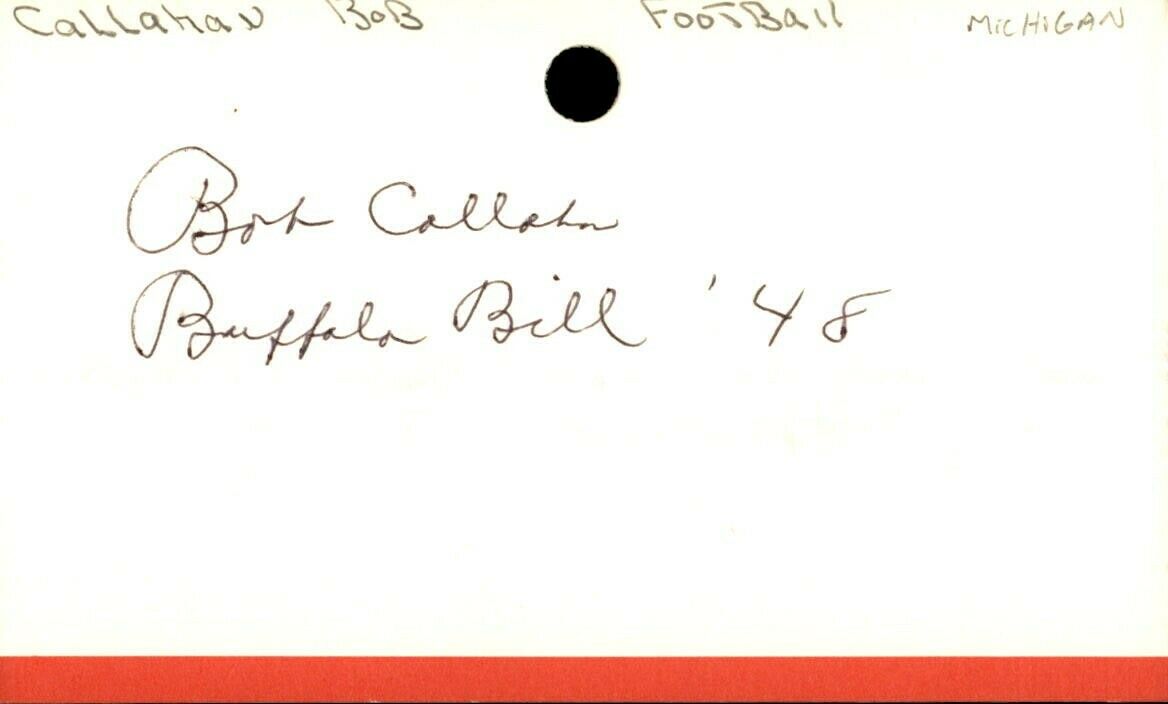 Callahan Bob Football MICHIGAN
Bob Callahan
Buffalo Bill '48